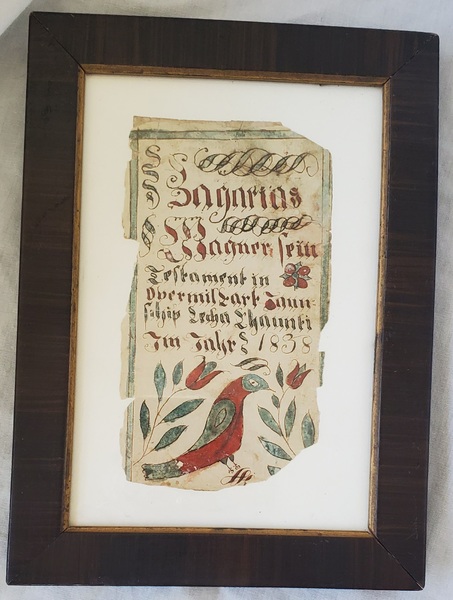 Zagarias
Wagner sein
Testament in
Overmilfart Taun-
schip Lecha Chaunti
Im Jahr 1838